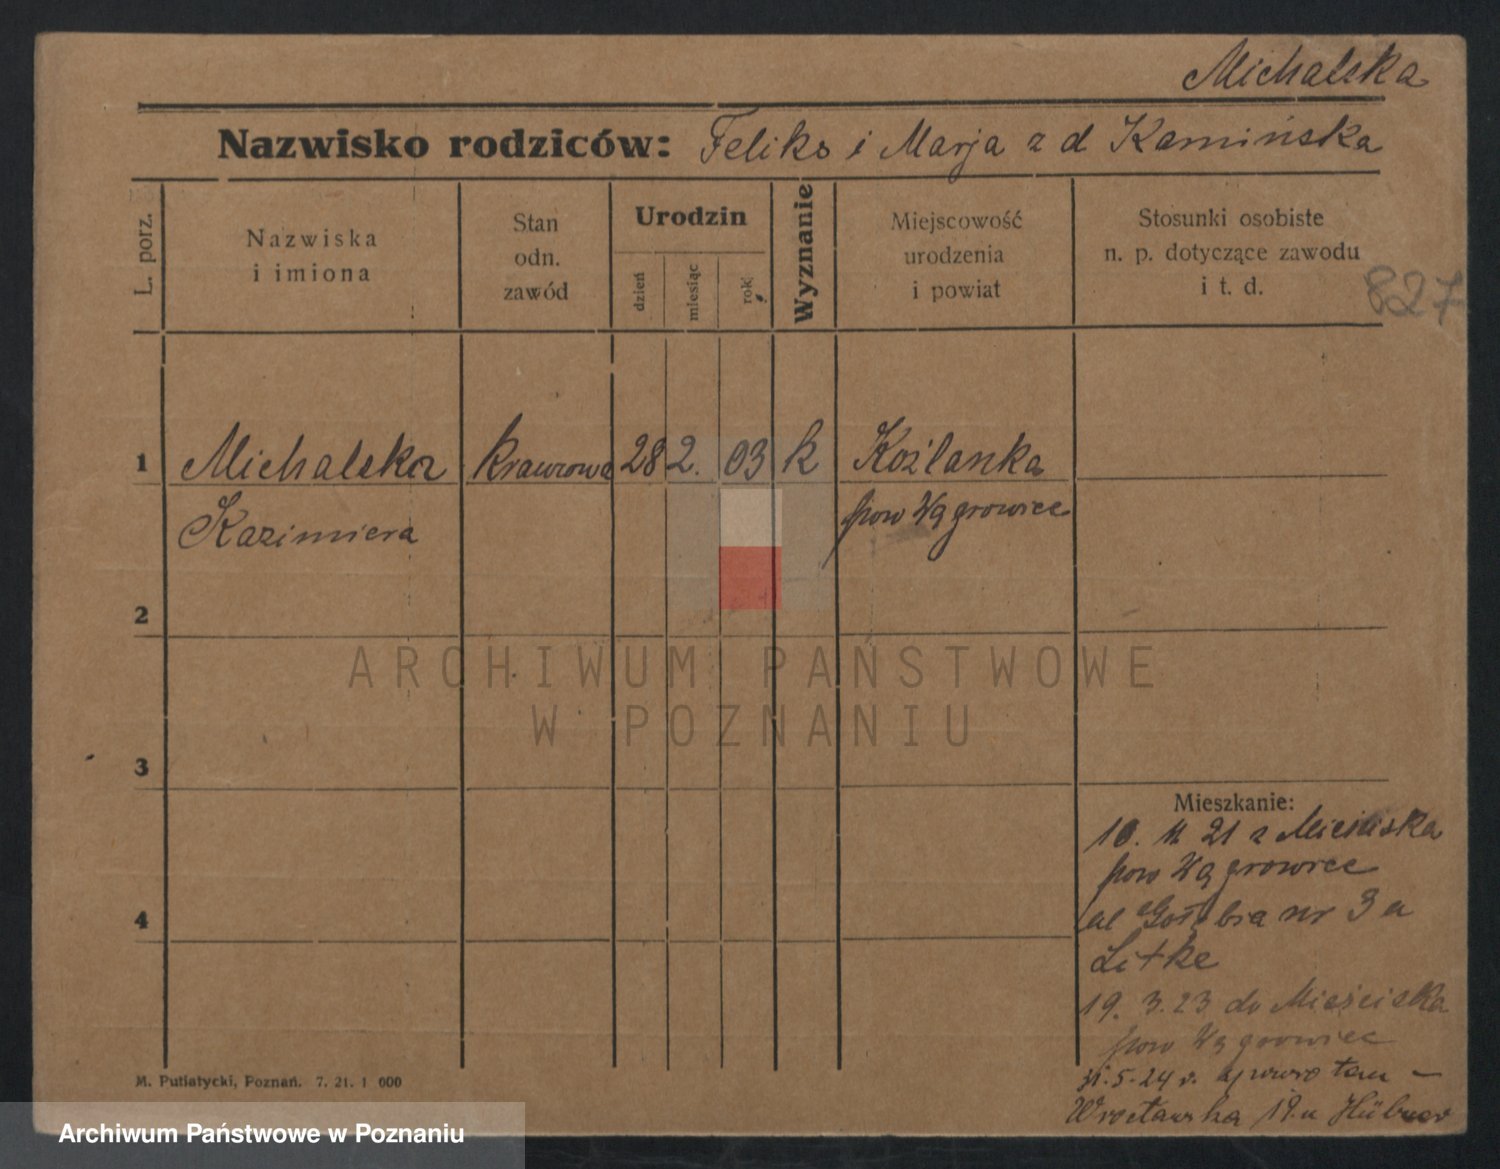 Michalska
Nazwisko rodziców: Feliks i Marja z d Kamińska
L. porz.
Nazwiska
i imiona
Stan
odn.
zawód
Urodzin
dzień
miesiąc
rok
Wyznanie
Miejscowość
urodzenia
i powiat
Stosunki osobiste
n. p. dotyczące zawodu
i t. d.
827
1 Michalska krawcowa 28 2. 03 k Koźlanka
Kazimiera pow Wągrowiec
2
ARCHIWUM PAŃSTWOWE
W POZNANIU
3
Mieszkanie:
21 z Mieściska
pow Wągrowiec
4
ul Gołębia nr 3 a
Litke
19. 3. 23 do Mieściska
pow Wągrowiec
31.5.24 r.
Wrocławska 19 u Hübner
M. Putiatycki, Poznań. 7. 21. 1 000
Archiwum Państwowe w Poznaniu